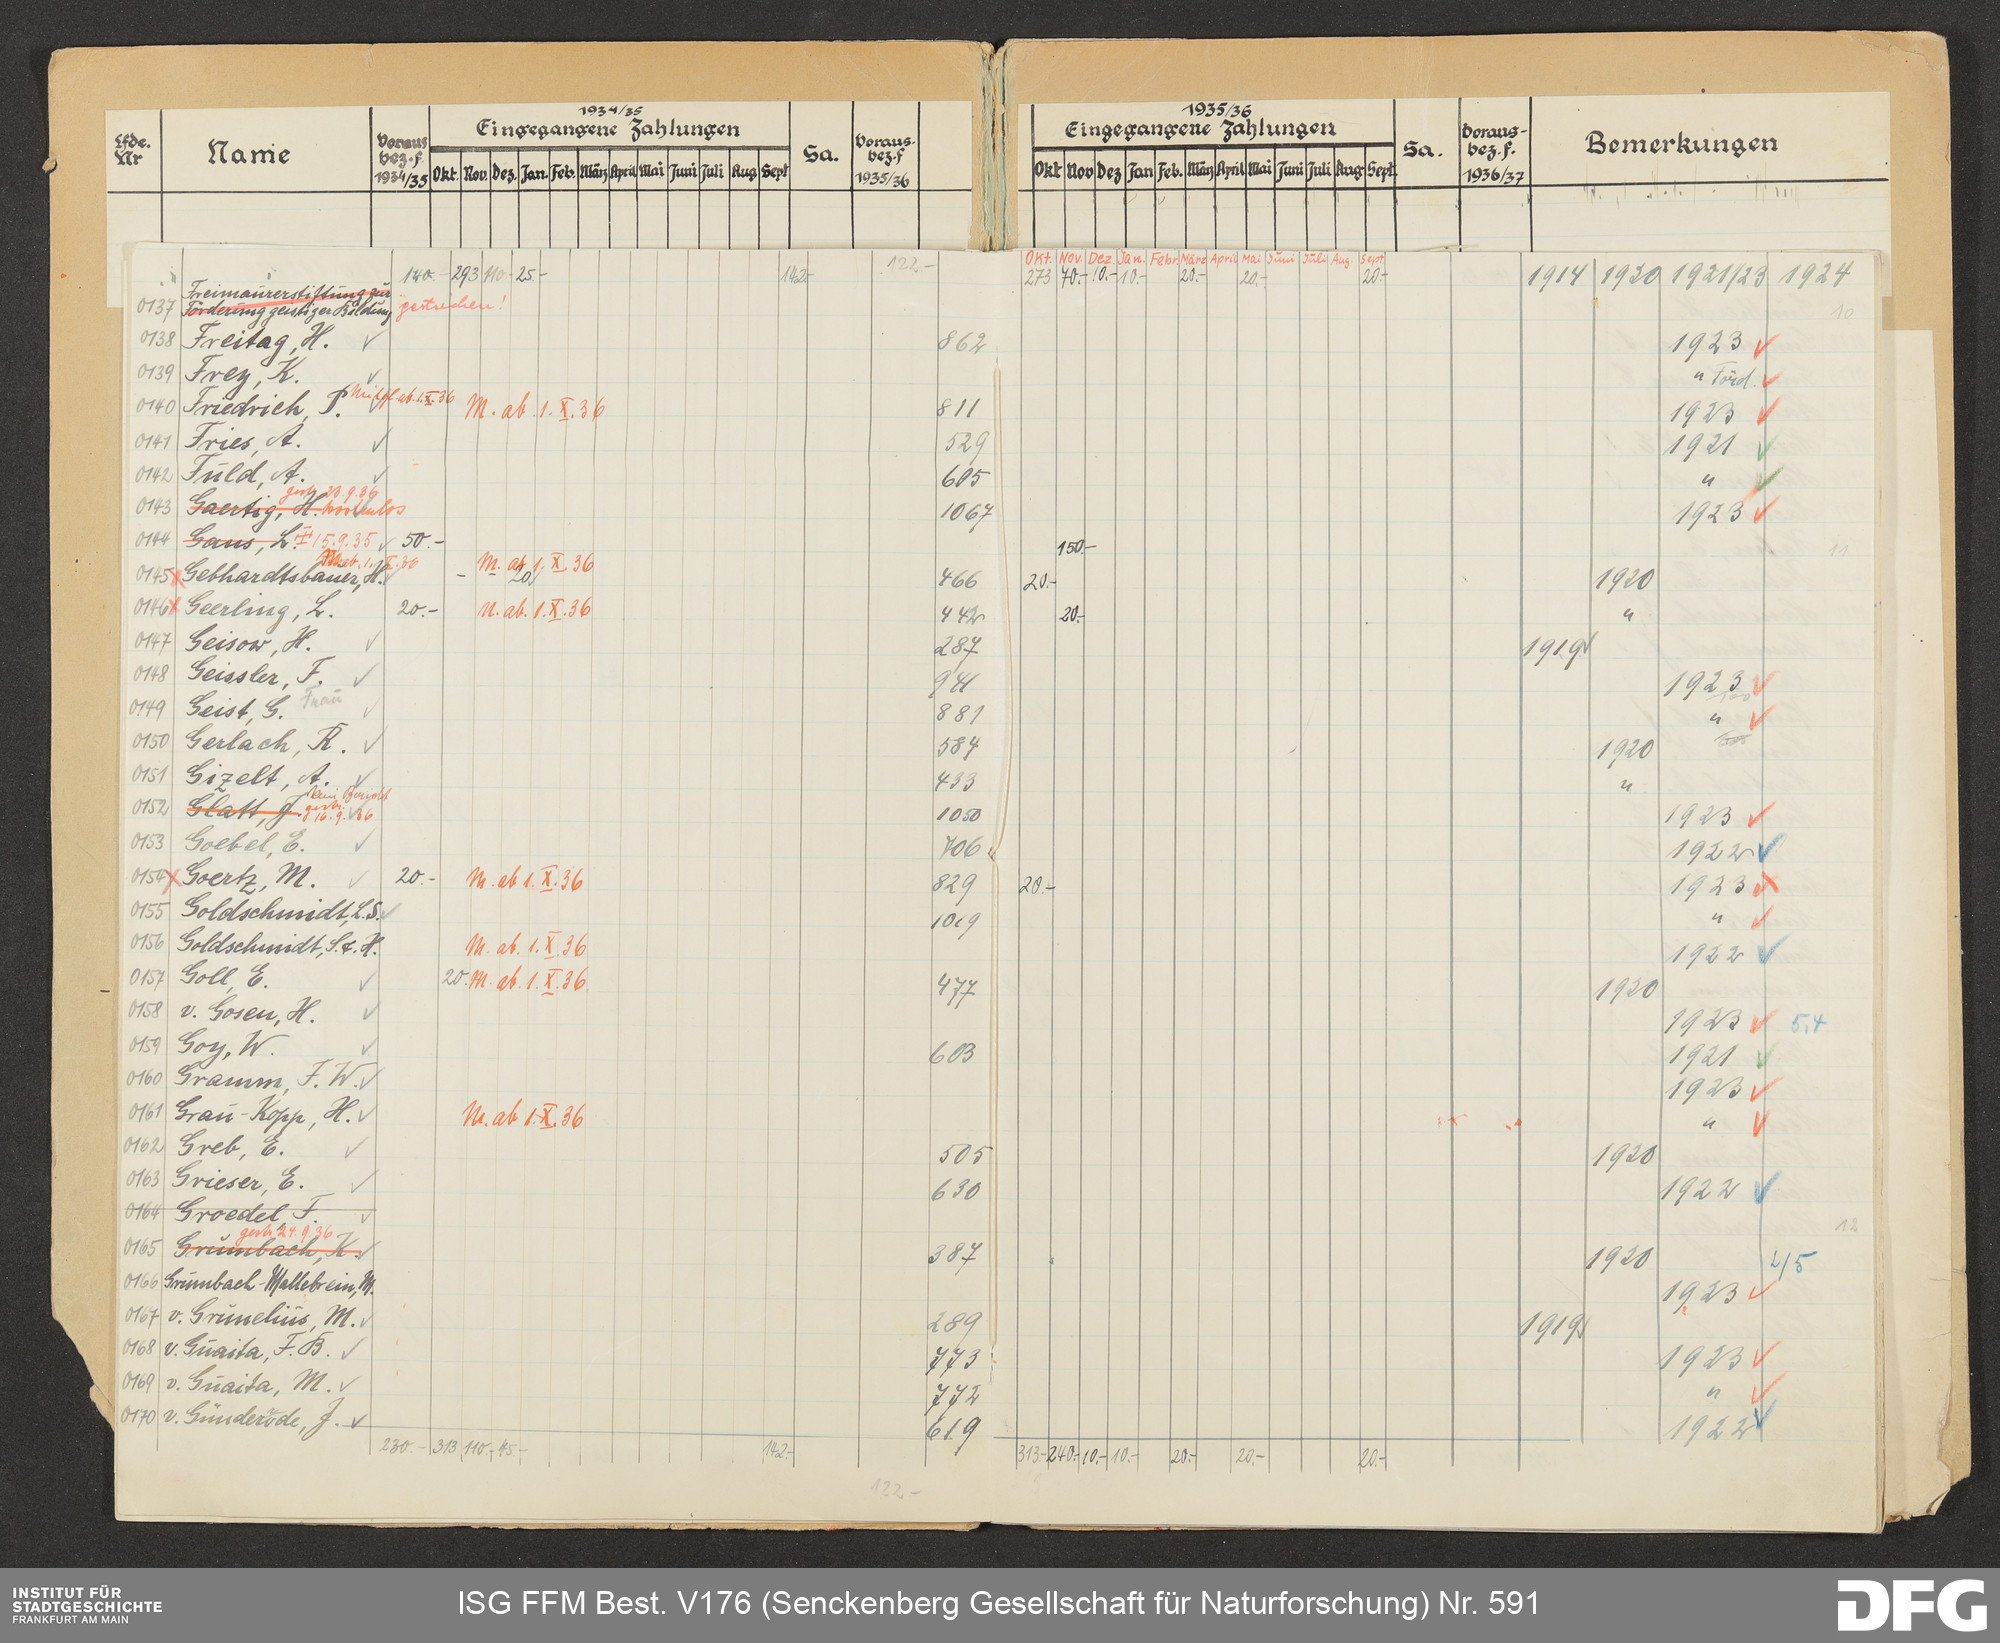 Lfde. Nr | Name | Voraus bez. f. 1934/35 | 1934/35 Eingegangene Zahlungen | Sa. | Voraus- bez. f 1935/36 | 1935/36 Eingegangene Zahlungen | Sa. | Voraus- bez. f. 1936/37 | Bemerkungen
Okt. Nov. Dez. Jan. Feb. März April Mai Juni Juli Aug Sept | Okt Nov Dez Jan Feb. März April Mai Juni Juli Aug Sept.
Okt. Nov. Dez. Jan. Febr. März April Mai Juni Juli Aug. Sept
140.- 293 110.- 25.- 142.- 122.- 273 70.- 10.- 10.- 20.- 20.- 20.- 1914 1920 1921/23 1924
0137 Freimaurerstiftung zur Förderung geistiger Bildung gestrichen! 10
0138 Freitag, H. 862 1923
0139 Frey, K. " Förd.
0140 Friedrich, P. ab 1.X.36 M. ab 1.X.36 811 1923
0141 Fries, A. 529 1921
0142 Fuld, A. 605 "
0143 Gaertig, H. gestr. 23.9.36 kostenlos 1067 1923
0144 Gans, L. 15.9.35 50.- 150.- 11
0145 Gebhardtsbauer, H. - M. ab 1.X.36 20 466 20.- 1920
0146 Geerling, L. 20.- M. ab 1.X.36 442 20.- "
0147 Geisow, H. 287 1919
0148 Geissler, F. 941 1923
0149 Geist, G. Frau 881 "
0150 Gerlach, K. 584 1920
0151 Gizelt, A. 433 "
0152 Glatt, J. gestr. 16.9.36 1050 1923
0153 Goebel, E. 706 1922
0154 Goertz, M. 20.- M. ab 1.X.36 829 20.- 1923
0155 Goldschmidt, L.S. 1019 "
0156 Goldschmidt, S. & H. M. ab. 1.X.36 1922
0157 Goll, E. 20. M. ab. 1.X.36 477 1920
0158 v. Gosen, H. 1923 5,4
0159 Goy, W. 603 1921
0160 Gramm, F. W. 1923
0161 Grau-Kopp, H. M. ab 1.X.36 "
0162 Greb, E. 505 1920
0163 Grieser, E. 630 1922
0164 Groedel F. 12
0165 Grumbach, K. gestr. 24.9.36 387 1920 4/5
0166 Grumbach-Mallebrein, M. 1923
0167 v. Grunelius, M. 289 1919
0168 v. Guaita, F. B. 773 1923
0169 v. Guaita, M. 772 "
0170 v. Günderode, J. 619 1922
230.- 313 110.- 45.- 142.- 313.- 240.- 10.- 10.- 20.- 20.- 20.-
122.-
INSTITUT FÜR
STADTGESCHICHTE
FRANKFURT AM MAIN
ISG FFM Best. V176 (Senckenberg Gesellschaft für Naturforschung) Nr. 591
DFG